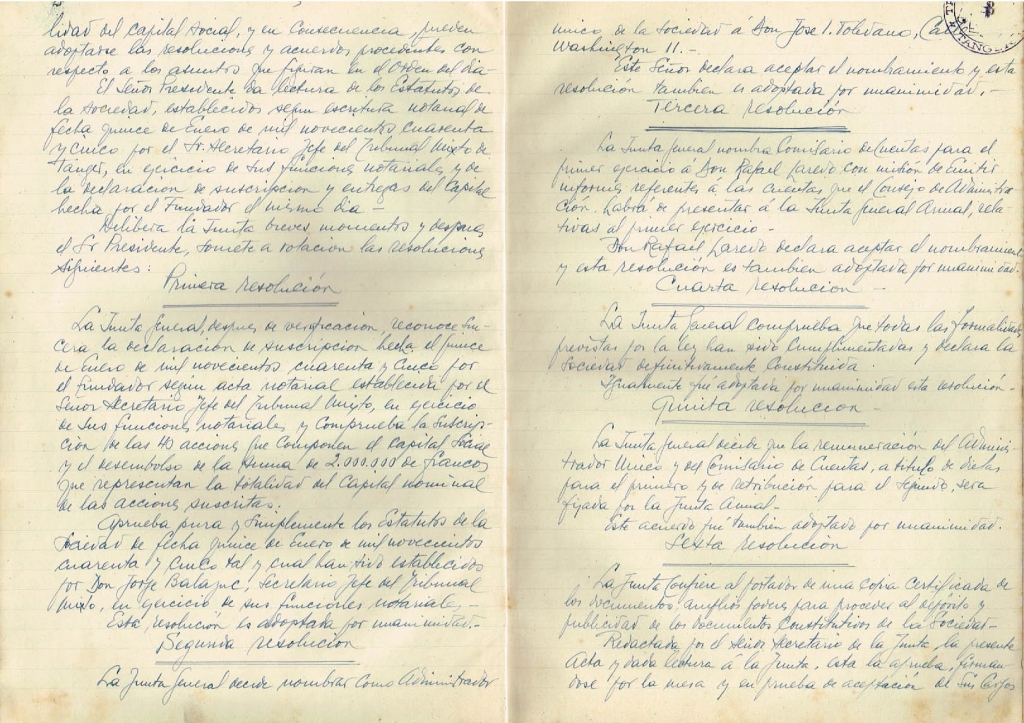 lidad del Capital Social, y en Consecuencia, pueden
adoptarse las resoluciones y acuerdos procedentes con
respecto a los asuntos que figuran en el Orden del dia-
El Señor Presidente da lectura de los Estatutos de
la Sociedad, establecidos según escritura notarial de
fecha quince de Enero de mil novecientos cuarenta
y cinco por el Sr. Secretario Jefe del Tribunal Mixto de
Tánger, en ejercicio de sus funciones notariales y de
la declaración de suscripcion y entregas del Capital
hecha por el Fundador el mismo dia-
Delibera la Junta breves, momentos y despues
el Sr Presidente, somete a votacion las resoluciones
siguientes:
Primera resolución
La Junta General, despues de verificacion, reconoce sin-
cera la declaracion de suscripcion hecha el quince
de Enero de mil novecientos cuarenta y Cinco por
el Fundador según acta notarial establecida por el
Señor Secretario Jefe del Tribunal Mixto, en ejercicio
de sus funciones notariales y Comprueba la Suscrip-
ción de las 40 acciones que Componen el Capital Social
y el desembolso de la suma de 2.000.000 de francos
que representan la totalidad del Capital nominal
de las acciones suscritas.
Aprueba pura y Simplemente los Estatutos de la
Sociedad de fecha quince de Enero de mil novecientos
cuarenta y cinco tal y cual han sido establecidos
por Don Jorge Secretario Jefe del Tribunal
Mixto, en ejercicio de sus funciones notariales.-
Esta, resolución es adoptada por unanimidad.-
Segunda resolucion
La Junta General decide nombrar Como Administrador
unico, de la Sociedad á Don Jose I. Toledano,
Washington 11.-
Este Señor declara aceptar el nombramiento y esta
resolucion tambien es adoptada por unanimidad.-
Tercera resolución
La Junta General nombra Comisario de Cuentas para el
primer ejercicio á Don Rafael Laredo con misión de Emitir
informes referentes á las cuentas que el Consejo de Administra-
ción. Habrá de presentar á la Junta General Anual, rela-
tivas al primer ejercicio-
Don Rafael Laredo declara aceptar el nombramient
y esta resolución es tambien adoptada por unanimidad.
Cuarta resolucion-
La Junta General comprueba que todas las formalidades
previstas por la ley han sido Cumplimentadas y declara la
Sociedad definitivamente Constituida.
Igualmente qué adoptada por unanimidad esta resolución-
Quinta resolucion-
La Junta General decide que la remuneración del Adminis-
trador Unico y del Comisario de Cuentas, a titulo de dietas
para el primero y de retribución para el segundo, sera
fijada por la Junta Anual-
Este acuerdo fué tambien adoptado por unanimidad.
Sexta resolución
La Junta Confiere al portador de una copia Certificada de
los documentos, amplios poderes para proceder al depósito y
publicidad de los documentos Constitutivos de la Sociedad-
Redactada por el Señor Secretario de la Junta, la presente
Acta y dada lectura á la Junta, esta la aprueba, firman-
dose por la mesa y en prueba de aceptación de Sus Cargos